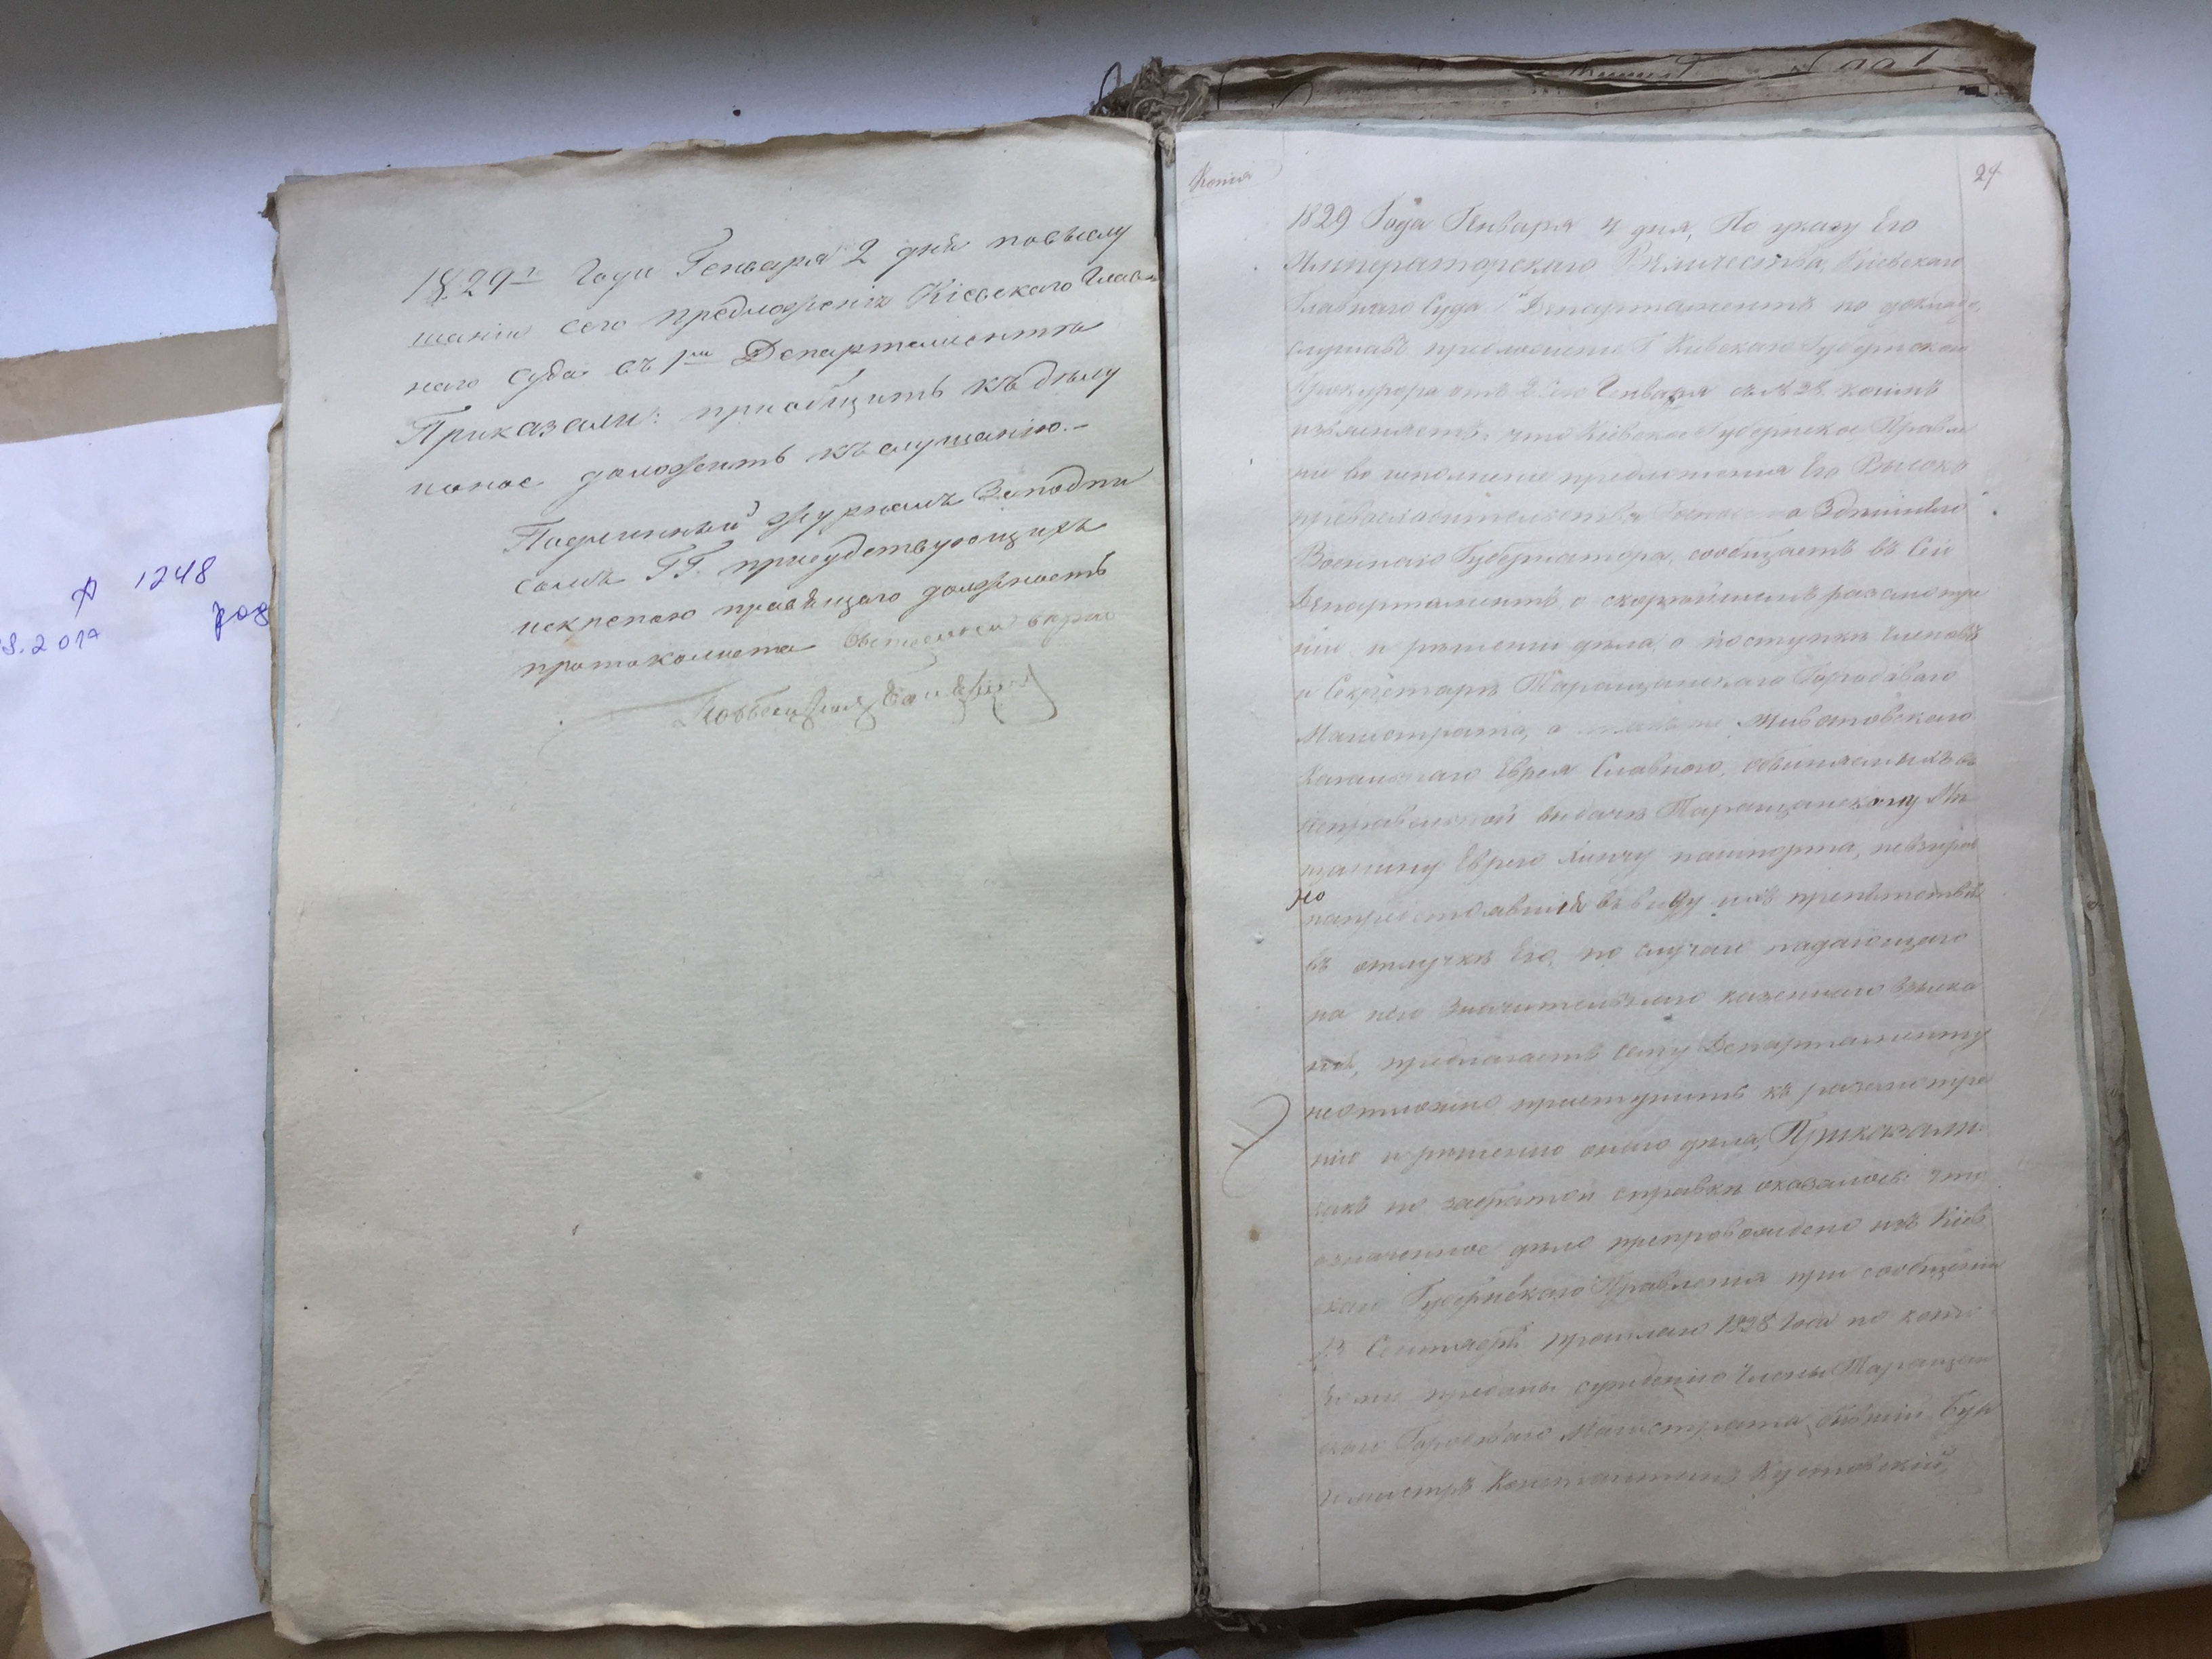 1829го Года Генваря 2 дня повыслу
шаніи сего предложенія Кіевского Глав-
наго Суда въ 1мъ Департаментѣ
Приказали: пріобщить къ дѣлу
ионое доложить къ слушанію.-
Подлинный журналъ За подпи
сомъ ГГ. присудствующихъ
искрепою правящаго должность
протоколиста
А 1248
.2017
Копія
29
1829 Года Генваря 4 дня, По указу Его
Императорскаго Величества, Кіевского
Главного Суда 1й Департаментъ по докладу,
слушавъ предложеніе Г. Киевского Губернского
Прокурора отъ 2 Сего Генваря съ № 28. коимъ
изъясняетъ: что Кіевское Губернское Правле
ніе во исполненіе предложенія Его Высоко
превосходительства Господина Здешнего
Военного Губернатора, сообщаетъ въ Сей
Департаментъ о скорейшемъ разсмотре
ніи и решеніи дела, о поступке Членовъ
и Секретаря Таращанского Городоваго
Магистрата, а Животовского
Кагального Еврея Славного, обвиняемыхъ въ
неправельной выдаче Таращанскому Ме
щанину Еврею Кинчу пашпорта, невзирая
но
напредстоявшія въ виду ихъ препятствія
въ отлучке Его, по случаю падающаго
на него значительного казенного взыска
нія, предлагаетъ сему Департаменту
неотложно приступить къ разсмотре
нію и решенію оного дела, Приказали:
какъ по забратой справке оказалось что
означенное дело препровождено изъ Кіев
скаго Губернскаго Правленія при сообщеніи
Сентября прошлаго 1828 Года по кото
рому преданы сужденію Члены Таращан
скаго Городоваго Магистрата, бывшій Бур
гомистръ Константинъ Кустовскій,